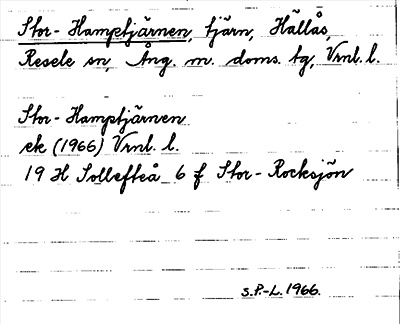 Stor-Hamptjärnen, tjärn, Hällås,
Resele sn, Ång. m. doms. tg, Vrnl. l.
Stor-Hamptjärnen
ek (1966) Vrnl. l.
19 H Sollefteå 6 f Stor-Rocksjön
S.P.-L. 1966.